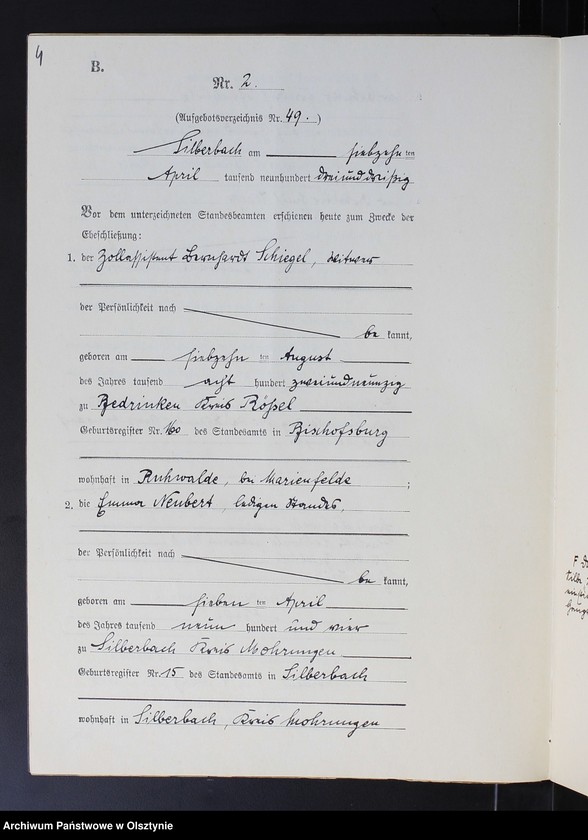 4
B.
Nr. 2.
(Aufgebotsverzeichnis Nr. 49.)
Silberbach am siebzehn ten
April tausend neunhundert dreiunddreißig
Vor dem unterzeichneten Standesbeamten erschienen heute zum Zwecke der
Eheschließung:
1. der Zollassistent Bernhardt Schiegel, Witwer
der Persönlichkeit nach
be kannt,
geboren am siebzehn ten August
des Jahres tausend acht hundert zweiundneunzig
zu Bedrinken Kreis Rößel
Geburtsregister Nr. 160 des Standesamts in Bischofsburg
wohnhaft in Ruhwalde, bei Marienfelde ;
2. die Emma Neubert, ledigen Standes,
der Persönlichkeit nach
be kannt,
geboren am sieben ten April
des Jahres tausend neun hundert und vier
zu Silberbach Kreis Mohrungen
Geburtsregister Nr. 15 des Standesamts in Silberbach
wohnhaft in Silberbach, Kreis Mohrungen
Archiwum Państwowe w Olsztynie